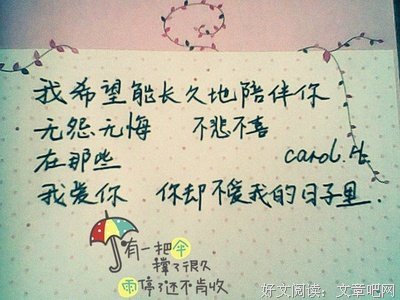 我希望能长久地陪伴你
无怨无悔 不悲不喜
在那些 carol.
我爱你 你却不爱我的日子里.
有一把伞
撑了很久
雨停了还不肯收
好文阅读：文章吧网